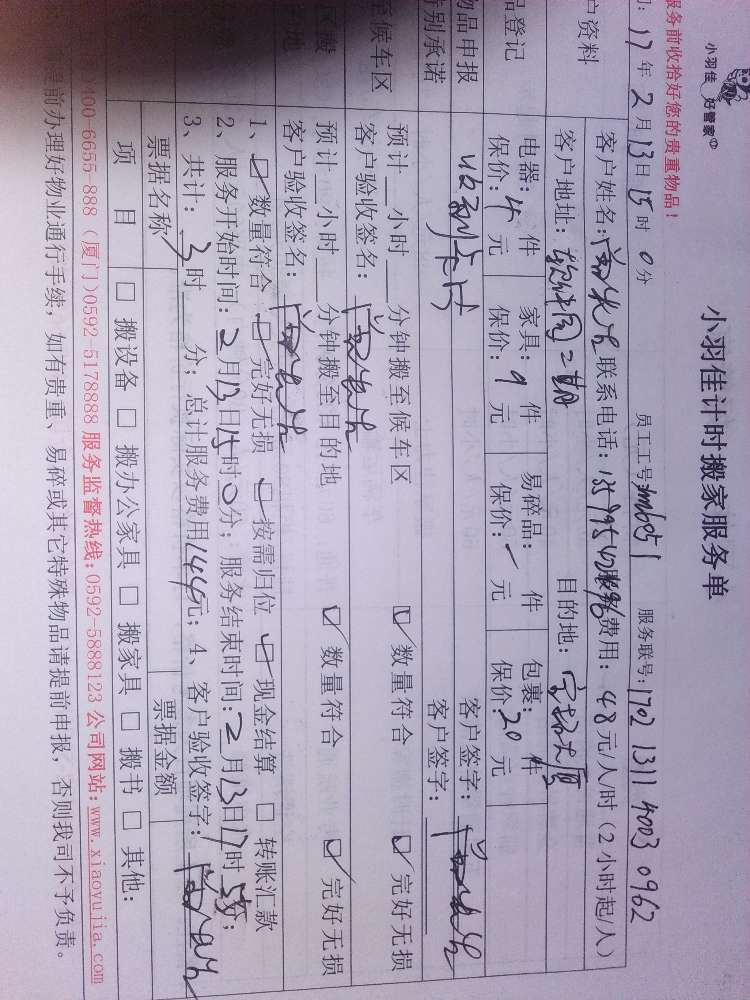 小羽佳 好管家
小羽佳计时搬家服务单
服务前收拾好您的贵重物品！
17年2月13日15时0分 员工工号 服务联号:1702 1311 4003 0962
户资料
客户姓名: 联系电话: 服务费用: 48元/人/时 (2小时起/人)
客户地址: 软件园二期 目的地:
品登记
电器:4件 家具:9件 易碎品:一件 包裹:20件
保价: 元 保价: 元 保价: 元 保价: 元
物品申报
客户签字:
特别承诺
客户签字:
至候车区
预计__小时__分钟搬至候车区 ☑数量符合 ☑完好无损
客户验收签名:
区搬
的地
预计__小时__分钟搬至目的地 ☑数量符合 ☑完好无损
客户验收签名:
1、☑数量符合 ☑完好无损 ☑按需归位 ☑现金结算 □转账汇款
2、服务开始时间:2月13日15时0分; 服务结束时间:2月13日17时 分;
3、共计:3时 分; 总计服务费用144元; 4、客户验收签字:
票据名称 票据金额
项 目 □搬设备 □搬办公家具 □搬家具 □搬书 □其他:
)400-6655-888 (厦门)0592-5178888 服务监督热线:0592-5888123 公司网站:www.xiaoyujia.com
提前办理好物业通行手续, 如有贵重、易碎或其它特殊物品请提前申报, 否则我司不予负责。